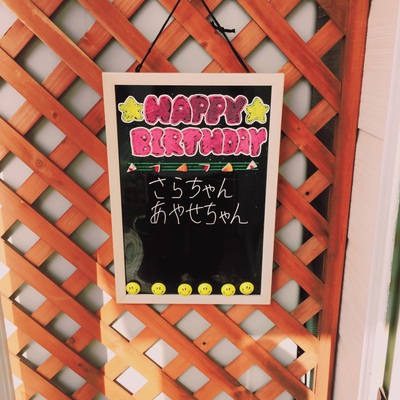 HAPPY
BIRTHDAY
さらちゃん
あやせちゃん